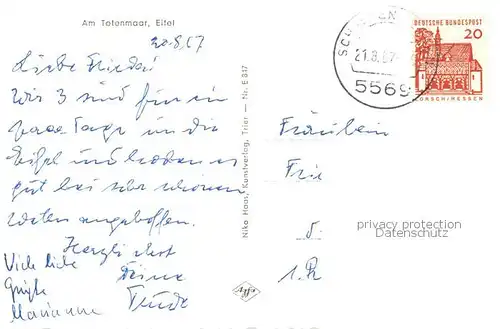 Am Totenmaar, Eifel
20.8.67
Liebe Frieda!
Wir 3 sind für ein
paar Tage in die
Eifel und haben es
gut bei sehr schönem
Wetter angetroffen.
Herzlichst
Deine
Viele liebe
Grüße
Marianne
Niko Haas, Kunstverlag, Trier — Nr. E 817
Agfa
21.8.67
5569
DEUTSCHE BUNDESPOST
20
LORSCH/HESSEN
Fräulein
privacy protection
Datenschutz